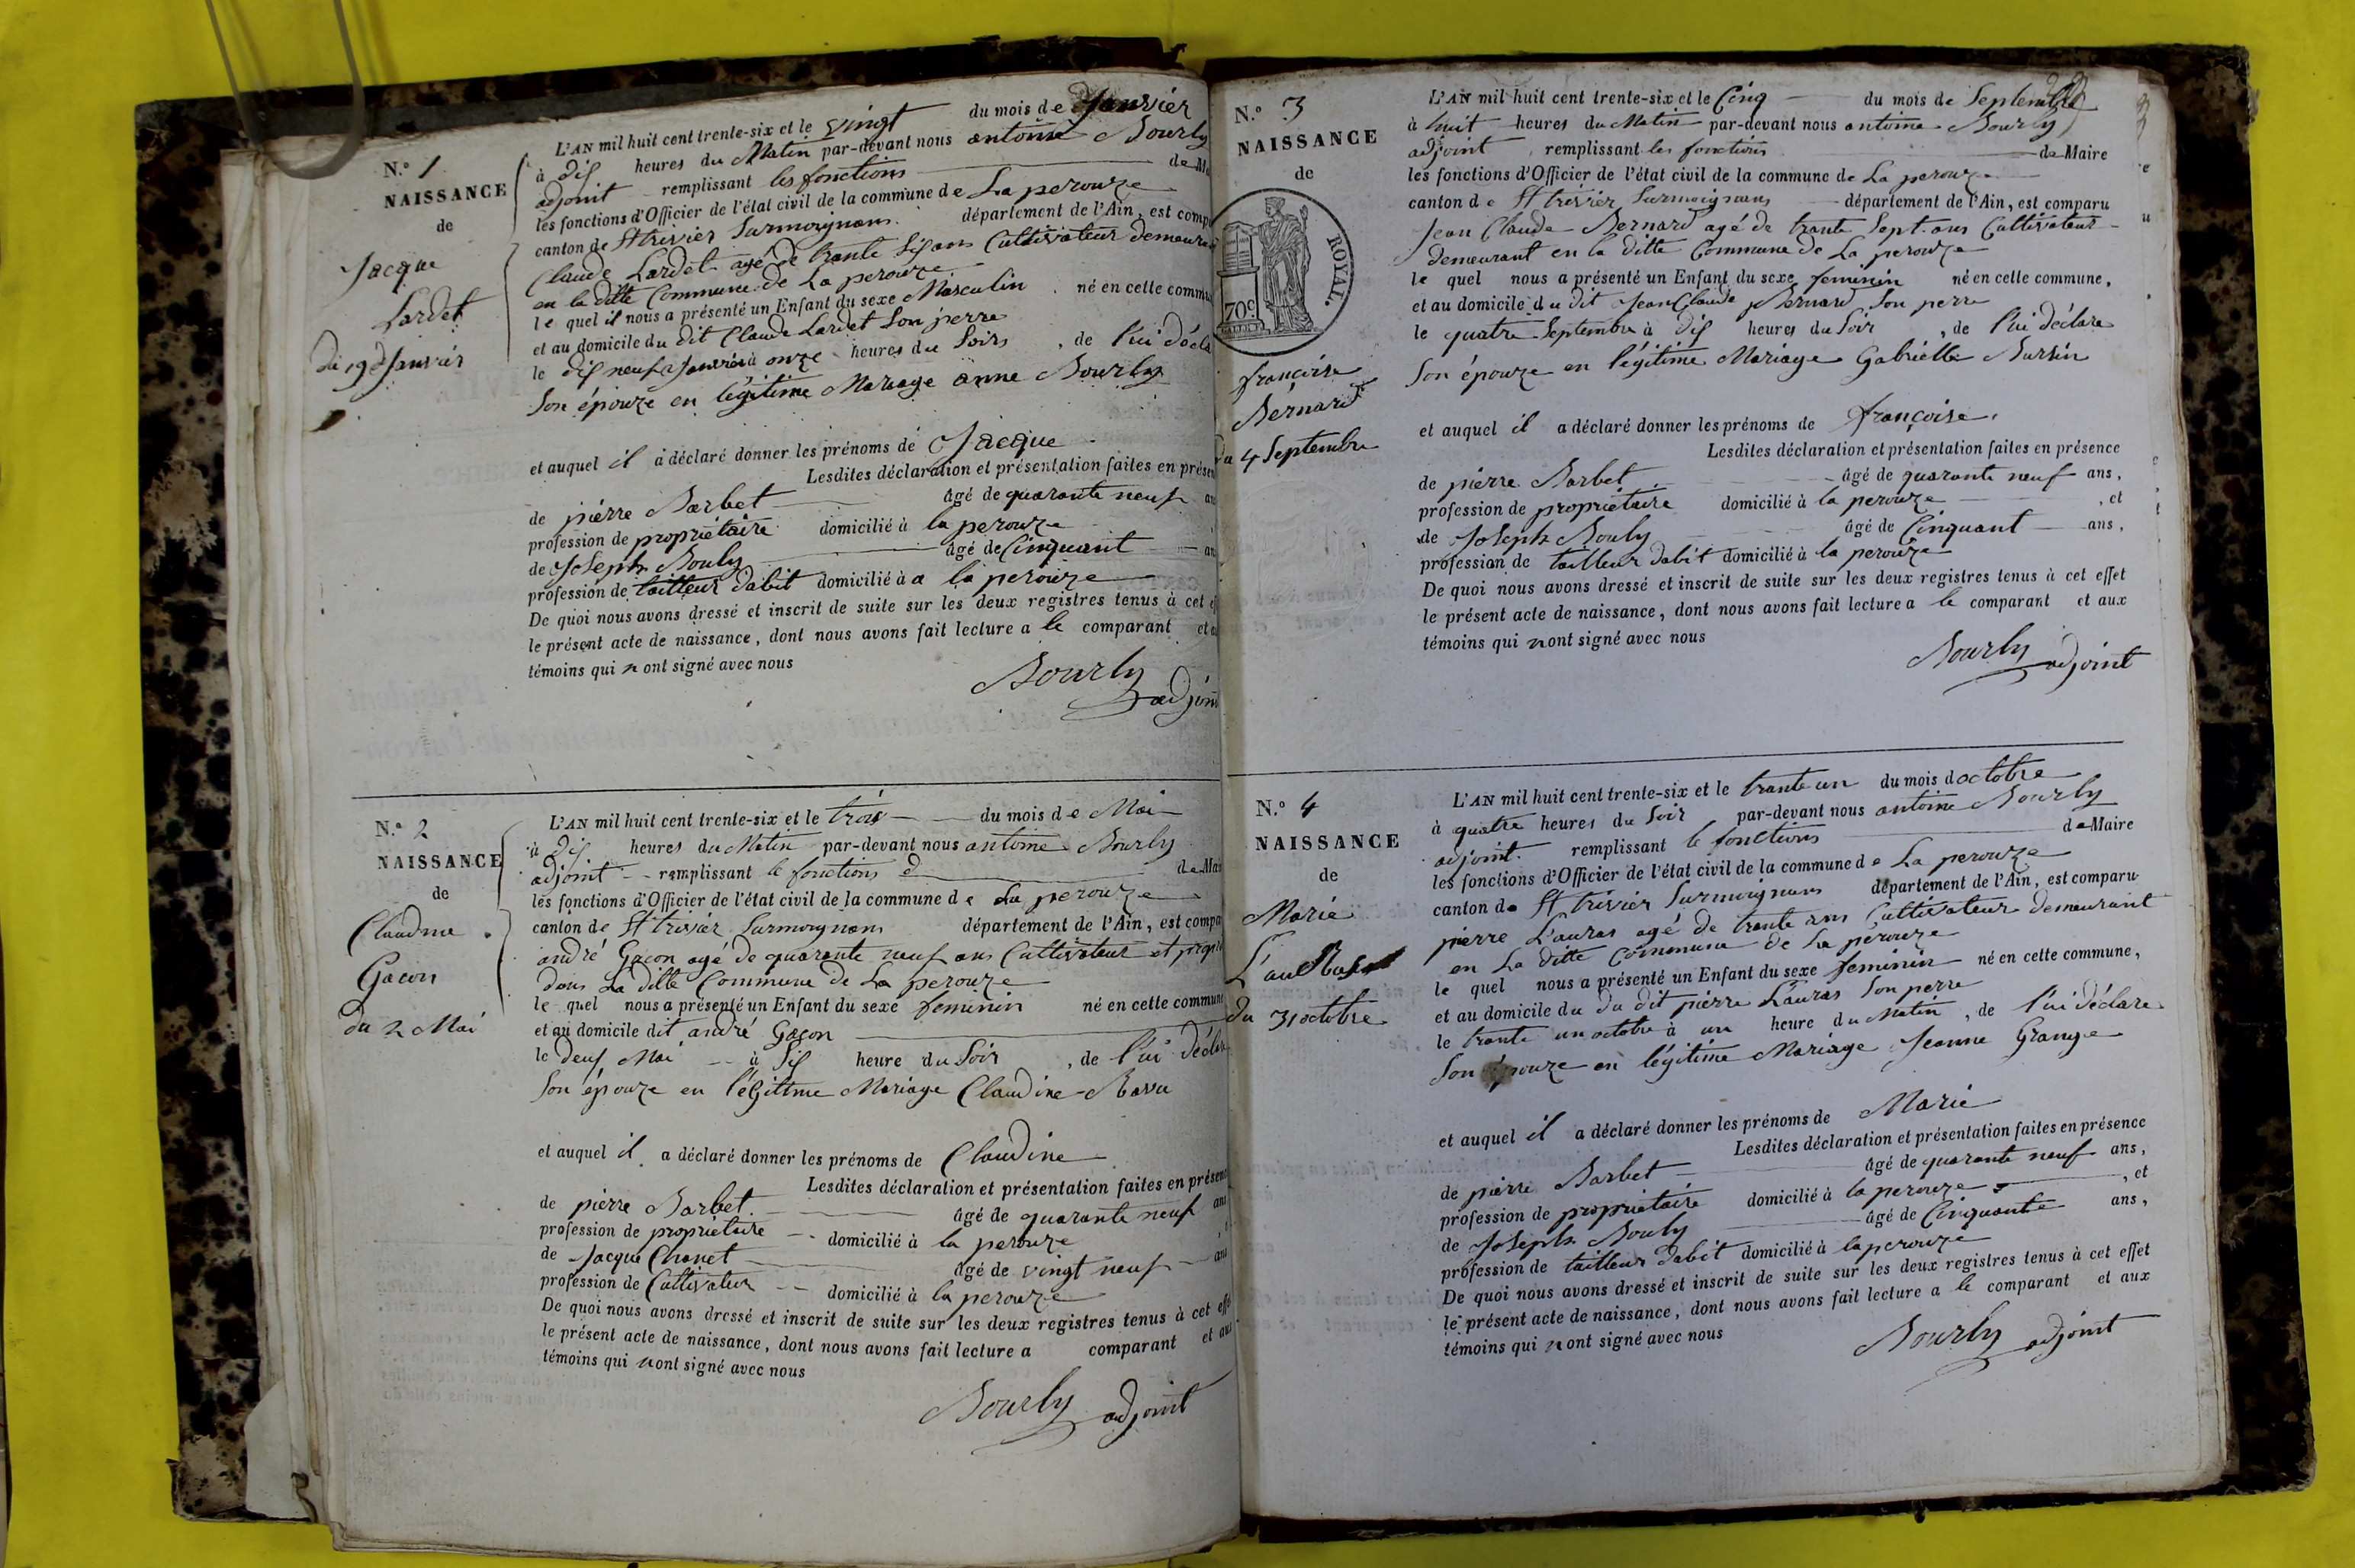 N.° 1
NAISSANCE
de
Jacque
Lardet
du 19 Janvier
L'AN mil huit cent trente-six et le vingt du mois de Janvier
à dis heures du Matin par-devant nous antoine Bourly
adjoint remplissant les fonctions de
les fonctions d'Officier de l'état civil de la commune de La perouze
canton de St trivier Surmoignans département de l'Ain, est
Claude Lardet agé de trante sis ans Cultivateur
en la ditte Commune de La perouze
le quel il nous a présenté un Enfant du sexe Masculin né en cette
et au domicile du dit Claude Lardet Son perre
le dis neuf Janvier à onze heures du Soirs, de l'ui
Son épouze en légitime Mariage anne Bourly
et auquel il a déclaré donner les prénoms de Jacque
Lesdites déclaration et présentation faites en
de pierre Barbet âgé de quarante neuf
profession de propriétaire domicilié à la perouze
de Joseph Bouly âgé de Cinquant
profession de tailleur dabit domicilié à a la perouze
De quoi nous avons dressé et inscrit de suite sur les deux registres tenus à cet
le présent acte de naissance, dont nous avons fait lecture a le comparant et
témoins qui n ont signé avec nous
Bourly
adjoint
N.° 2
NAISSANCE
de
Claudine
Gacon
du 2 Mai
L'AN mil huit cent trente-six et le trois du mois de Mai
à dis heures du Matin par-devant nous antoine Bourly
adjoint remplissant le fonctions d de
les fonctions d'Officier de l'état civil de la commune de La perouze
canton de St trivier Surmoignans département de l'Ain, est
andré Gacon agé de quarante neuf ans Cultivateur et
dans La ditte Commune de La perouze
le quel nous a présenté un Enfant du sexe feminin né en cette commune
et au domicile dit andré Gacon
le deus Mai à sis heure du Soir, de l'ui
Son épouze en l'égittme Mariage Claudine
et auquel il a déclaré donner les prénoms de Claudine
Lesdites déclaration et présentation faites en
de pierre Barbet âgé de quarante neuf ans
profession de propriétaire domicilié à la perouze
de Jacque Chanet âgé de vingt neuf
profession de Cultivateur domicilié à la perouze
De quoi nous avons dressé et inscrit de suite sur les deux registres tenus à cet
le présent acte de naissance, dont nous avons fait lecture a comparant et aux
témoins qui n ont signé avec nous
Bourly adjoint
N.° 3
NAISSANCE
de
ROYAL.
70c
françoise
Bernard
du 4 Septembre
L'AN mil huit cent trente-six et le Cinq du mois de Septembre
à huit heures du Matin par-devant nous antoine Bourly
adjoint remplissant les fonctions de Maire
les fonctions d'Officier de l'état civil de la commune de La perouze
canton de St trivier Surmoignans département de l'Ain, est comparu
Jean Claude Bernard agé de trante Sept ans Cultivateur
demeurant en la ditte Commune de La perouze
le quel nous a présenté un Enfant du sexe feminin né en cette commune,
et au domicile du dit Jean Claude Bernard Son perre
le quatre Septembre à dis heures du Soir, de l'ui déclare
Son épouze en légitime Mariage Gabrielle Bursin
et auquel il a déclaré donner les prénoms de françoise
Lesdites déclaration et présentation faites en présence
de pierre Barbet âgé de quarante neuf ans,
profession de propriétaire domicilié à la perouze, et
de Joseph Bouly âgé de Cinquant ans,
profession de tailleur dabit domicilié à la perouze
De quoi nous avons dressé et inscrit de suite sur les deux registres tenus à cet effet
le présent acte de naissance, dont nous avons fait lecture a le comparant et aux
témoins qui n ont signé avec nous
Bourly adjoint
N.° 4
NAISSANCE
de
Marie
du 31 octobre
L'AN mil huit cent trente-six et le trante un du mois doctobre
à quatre heures du Soir par-devant nous antoine Bourly
adjoint remplissant le fonctions de Maire
les fonctions d'Officier de l'état civil de la commune de La perouze
canton de St trivier Surmoignans département de l'Ain, est comparu
pierre L'auras agé de trante ans Cultivateur demeurant
en La ditte Commune de La perouze
le quel nous a présenté un Enfant du sexe feminin né en cette commune,
et au domicile du du dit pierre L'auras Son perre
le trante un octobre à un heure du Matin, de l'ui déclare
Son épouze en légitime Mariage Jeanne Grange
et auquel il a déclaré donner les prénoms de Marie
Lesdites déclaration et présentation faites en présence
de pierre Barbet âgé de quarante neuf ans,
profession de propriétaire domicilié à la perouze, et
de Joseph Bouly âgé de Cinquante ans,
profession de tailleur dabit domicilié à la perouze
De quoi nous avons dressé et inscrit de suite sur les deux registres tenus à cet effet
le présent acte de naissance, dont nous avons fait lecture a le comparant et aux
témoins qui n ont signé avec nous
Bourly adjoint